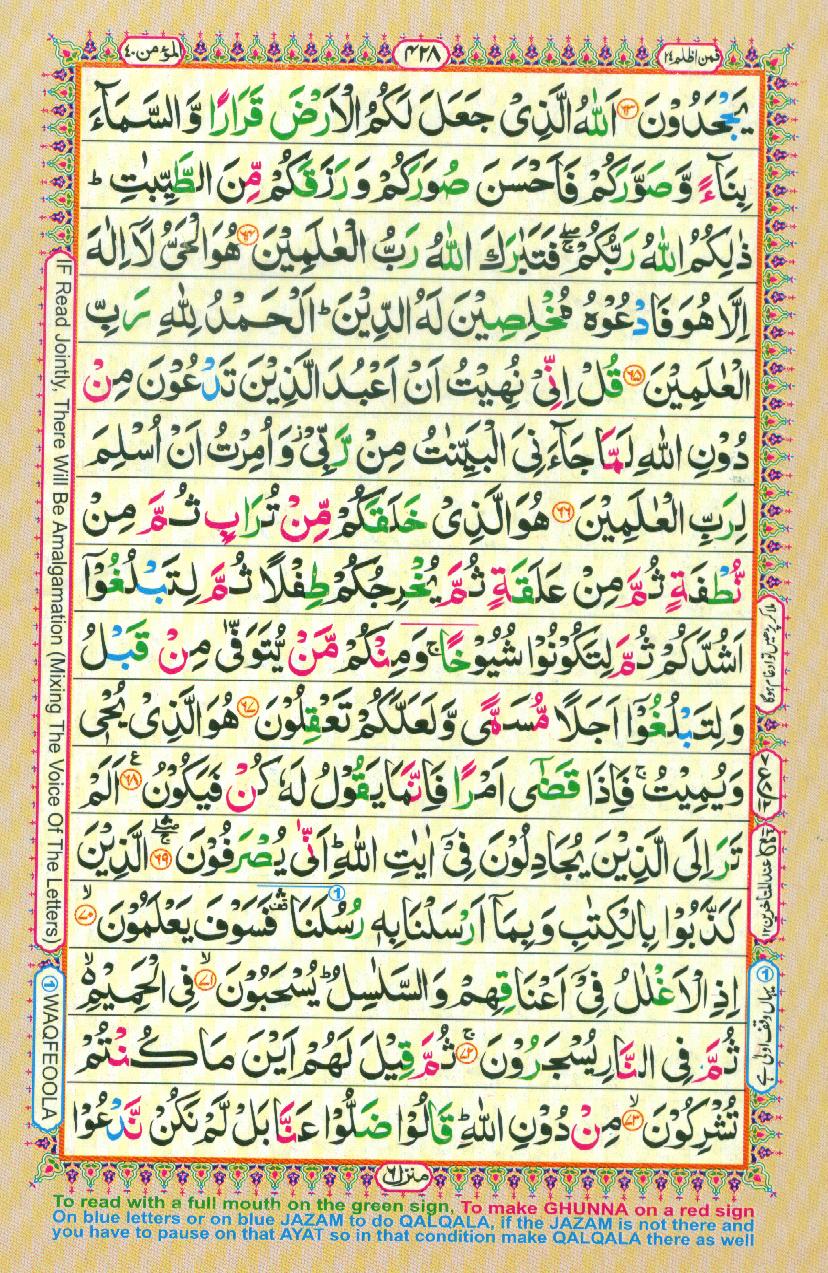 فمن اظلم ۲۴
۴۲۸
المؤمن ۴۰
یَجْحَدُوْنَ ﴿۶۳﴾ اَللّٰهُ الَّذِیْ جَعَلَ لَكُمُ الْاَرْضَ قَرَارًا وَّ السَّمَآءَ
بِنَآءً وَّ صَوَّرَكُمْ فَاَحْسَنَ صُوَرَكُمْ وَ رَزَقَكُمْ مِّنَ الطَّیِّبٰتِ ؕ
ذٰلِكُمُ اللّٰهُ رَبُّكُمْ ۖۚ فَتَبٰرَكَ اللّٰهُ رَبُّ الْعٰلَمِیْنَ ﴿۶۴﴾ هُوَ الْحَیُّ لَاۤ اِلٰهَ
اِلَّا هُوَ فَادْعُوْهُ مُخْلِصِیْنَ لَهُ الدِّیْنَ ؕ اَلْحَمْدُ لِلّٰهِ رَبِّ
الْعٰلَمِیْنَ ﴿۶۵﴾ قُلْ اِنِّیْ نُهِیْتُ اَنْ اَعْبُدَ الَّذِیْنَ تَدْعُوْنَ مِنْ
دُوْنِ اللّٰهِ لَمَّا جَآءَنِیَ الْبَیِّنٰتُ مِنْ رَّبِّیْ ؗ وَ اُمِرْتُ اَنْ اُسْلِمَ
لِرَبِّ الْعٰلَمِیْنَ ﴿۶۶﴾ هُوَ الَّذِیْ خَلَقَكُمْ مِّنْ تُرَابٍ ثُمَّ مِنْ
نُّطْفَةٍ ثُمَّ مِنْ عَلَقَةٍ ثُمَّ یُخْرِجُكُمْ طِفْلًا ثُمَّ لِتَبْلُغُوْۤا
اَشُدَّكُمْ ثُمَّ لِتَكُوْنُوْا شُیُوْخًا ۚ وَ مِنْكُمْ مَّنْ یُّتَوَفّٰی مِنْ قَبْلُ
وَ لِتَبْلُغُوْۤا اَجَلًا مُّسَمًّی وَّ لَعَلَّكُمْ تَعْقِلُوْنَ ﴿۶۷﴾ هُوَ الَّذِیْ یُحْیٖ
وَ یُمِیْتُ ۚ فَاِذَا قَضٰۤی اَمْرًا فَاِنَّمَا یَقُوْلُ لَهٗ كُنْ فَیَكُوْنُ ﴿۶۸﴾ اَلَمْ
تَرَ اِلَی الَّذِیْنَ یُجَادِلُوْنَ فِیْۤ اٰیٰتِ اللّٰهِ ؕ اَنّٰی یُصْرَفُوْنَ ﴿۶۹﴾ الَّذِیْنَ
كَذَّبُوْا بِالْكِتٰبِ وَ بِمَاۤ اَرْسَلْنَا بِهٖ رُسُلَنَا ۛ۫ فَسَوْفَ یَعْلَمُوْنَ ﴿۷۰﴾
اِذِ الْاَغْلٰلُ فِیْۤ اَعْنَاقِهِمْ وَ السَّلٰسِلُ ؕ یُسْحَبُوْنَ ﴿۷۱﴾ فِی الْحَمِیْمِ ۬ۙ
ثُمَّ فِی النَّارِ یُسْجَرُوْنَ ﴿۷۲﴾ ثُمَّ قِیْلَ لَهُمْ اَیْنَ مَا كُنْتُمْ
تُشْرِكُوْنَ ﴿۷۳﴾ مِنْ دُوْنِ اللّٰهِ ؕ قَالُوْا ضَلُّوْا عَنَّا بَلْ لَّمْ نَكُنْ نَّدْعُوْا
منزل ۶
IF Read Jointly, There Will Be Amalgamation (Mixing The Voice Of The Letters)
① WAQFEOOLA
① یہاں وقف اولیٰ ہے
To read with a full mouth on the green sign, To make GHUNNA on a red sign
On blue letters or on blue JAZAM to do QALQALA, if the JAZAM is not there and
you have to pause on that AYAT so in that condition make QALQALA there as well